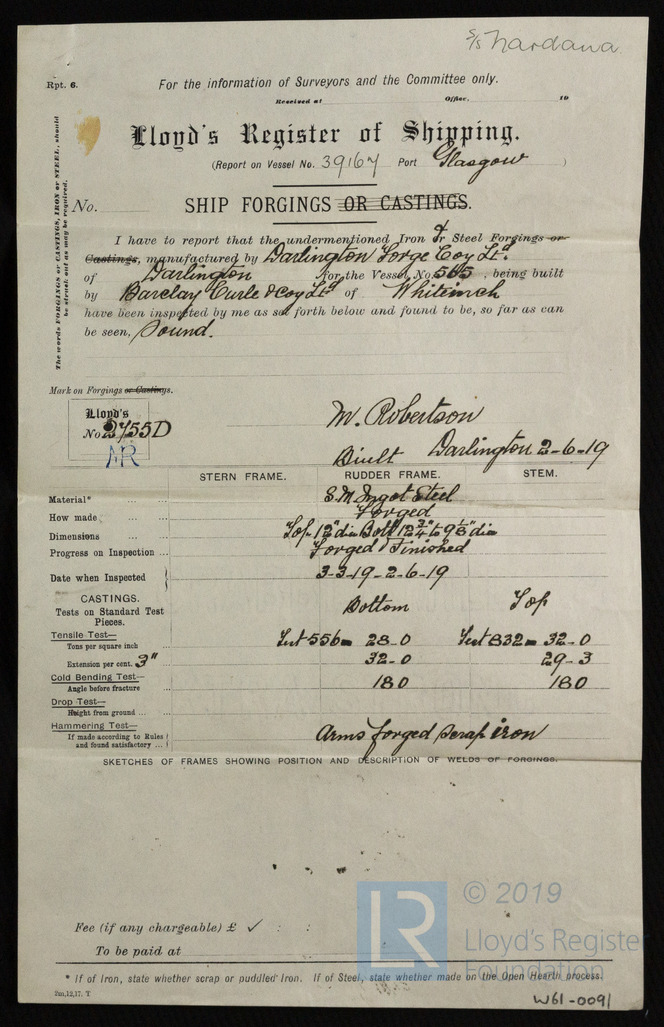 S/S Nardana
Rpt. 6.
For the information of Surveyors and the Committee only.
Received at Office, 19
Lloyd's Register of Shipping.
(Report on Vessel No. 39167 Port Glasgow )
No. SHIP FORGINGS OR CASTINGS.
The words FORGINGS or CASTINGS, IRON or STEEL, should
be struck out as may be required.
I have to report that the undermentioned Iron & Steel Forgings or
Castings, manufactured by Darlington Forge Coy Ltd.
of Darlington for the Vessel No. 565, being built
by Barclay Curle & Coy Ltd of Whiteinch
have been inspected by me as set forth below and found to be, so far as can
be seen, Sound.
Mark on Forgings or Castings.
Lloyd's
No 2755D
MR
M. Robertson
Built Darlington 2-6-19
STERN FRAME. RUDDER FRAME. STEM.
Material* S.M. Ingot Steel
How made Forged
Dimensions Top 12" dia Bott 12 3/4" to 9 1/8" dia
Progress on Inspection Forged & Finished
Date when Inspected 3-3-19 - 2-6-19
CASTINGS.
Tests on Standard Test
Pieces.
Bottom Top
Tensile Test—
Tons per square inch Test 556 - 28-0 Test 832 - 32-0
Extension per cent. 3" 32-0 29-3
Cold Bending Test—
Angle before fracture 180 180
Drop Test—
Height from ground
Hammering Test—
If made according to Rules
and found satisfactory
Arms forged scrap iron
SKETCHES OF FRAMES SHOWING POSITION AND DESCRIPTION OF WELDS OF FORGINGS.
Fee (if any chargeable) £ ✓ : :
To be paid at
* If of Iron, state whether scrap or puddled Iron. If of Steel, state whether made on the Open Hearth process.
2m,12,17. T
W61-0091
LR
© 2019
Lloyd's Register
Foundation